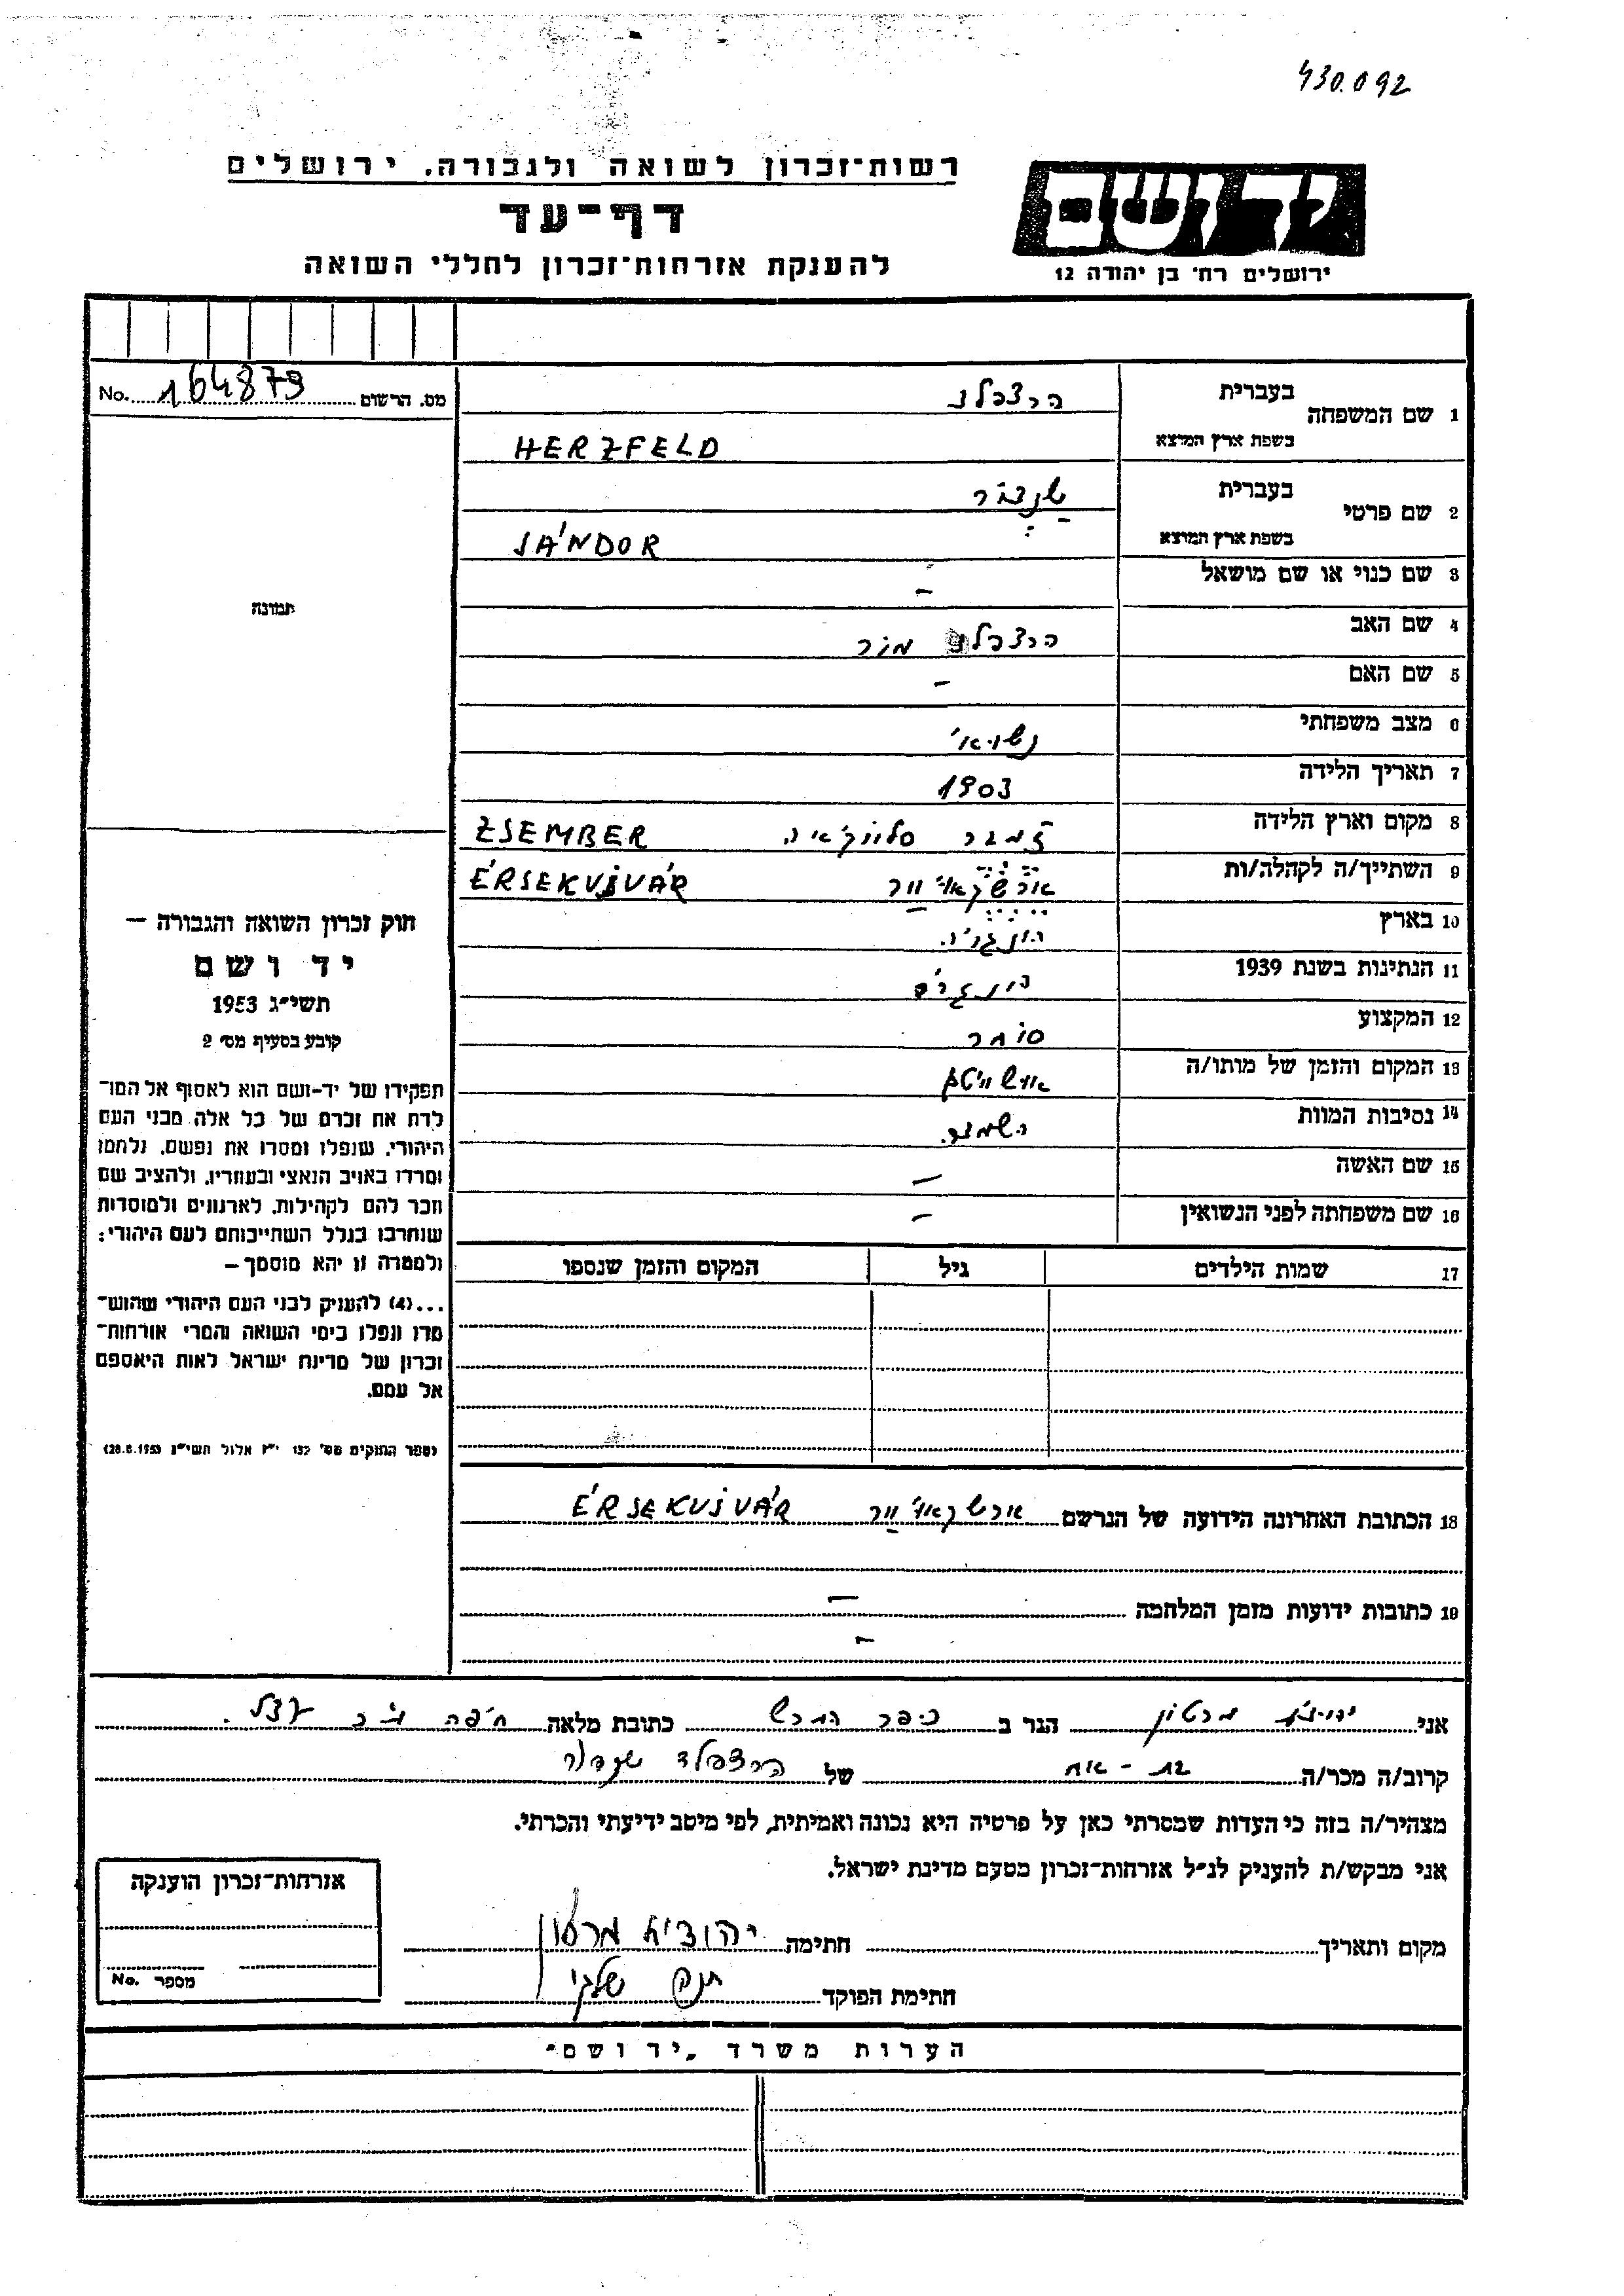 430.092
רשות־זכרון לשואה ולגבורה, ירושלים
דף־עד
להענקת אזרחות־זכרון לחללי השואה
יד ושם
ירושלים רח׳ בן יהודה 12
No. 164879 מס. הרשום
1 שם המשפחה בעברית הרצפלד
בשפת ארץ המוצא HERZFELD
2 שם פרטי בעברית שנדור
בשפת ארץ המוצא SÁNDOR
3 שם כנוי או שם מושאל –
4 שם האב הרצפלד מור
5 שם האם –
6 מצב משפחתי נשוי
7 תאריך הלידה 1903
8 מקום וארץ הלידה זמבר סלובקיה ZSEMBER
9 השתייך/ה לקהלה/ות ÉRSEKUJVÁR
10 בארץ הונגריה
11 הנתינות בשנת 1939
12 המקצוע סוחר
13 המקום והזמן של מותו/ה
14 נסיבות המוות השמדה
15 שם האשה –
16 שם משפחתה לפני הנשואין –
17 שמות הילדים גיל המקום והזמן שנספו
תמונה
חוק זכרון השואה והגבורה –
יד ושם
תשי״ג 1953
קובע בסעיף מס׳ 2
תפקידו של יד־ושם הוא לאסוף אל המו־
לדת את זכרם של כל אלה מבני העם
היהודי, שנפלו ומסרו את נפשם, נלחמו
ומרדו באויב הנאצי ובעוזריו, ולהציב שם
וזכר להם לקהילות, לארגונים ולמוסדות
שנחרבו בגלל השתייכותם לעם היהודי;
ולמטרה זו יהא מוסמך –
...(4) להעניק לבני העם היהודי שהוש־
מדו ונפלו בימי השואה והמרי אזרחות־
זכרון של מדינת ישראל לאות היאספם
אל עמם.
(ספר החוקים מס׳ 132 י״ז אלול תשי״ג 28.8.1953)
18 הכתובת האחרונה הידועה של הנרשם ÉRSEKUJVÁR
19 כתובות ידועות מזמן המלחמה –
–
אני יהודית מרטון הגר ב כתובת מלאה חיפה
קרוב/ה מכר/ה בת־אח של הרצפלד שנדור
מצהיר/ה בזה כי העדות שמסרתי כאן על פרטיה היא נכונה ואמיתית, לפי מיטב ידיעתי והכרתי.
אני מבקש/ת להעניק לנ״ל אזרחות־זכרון מטעם מדינת ישראל.
אזרחות־זכרון הוענקה
No. מספר
מקום ותאריך חתימה יהודית מרטון
חתימת הפוקד
הערות משרד „יד ושם״